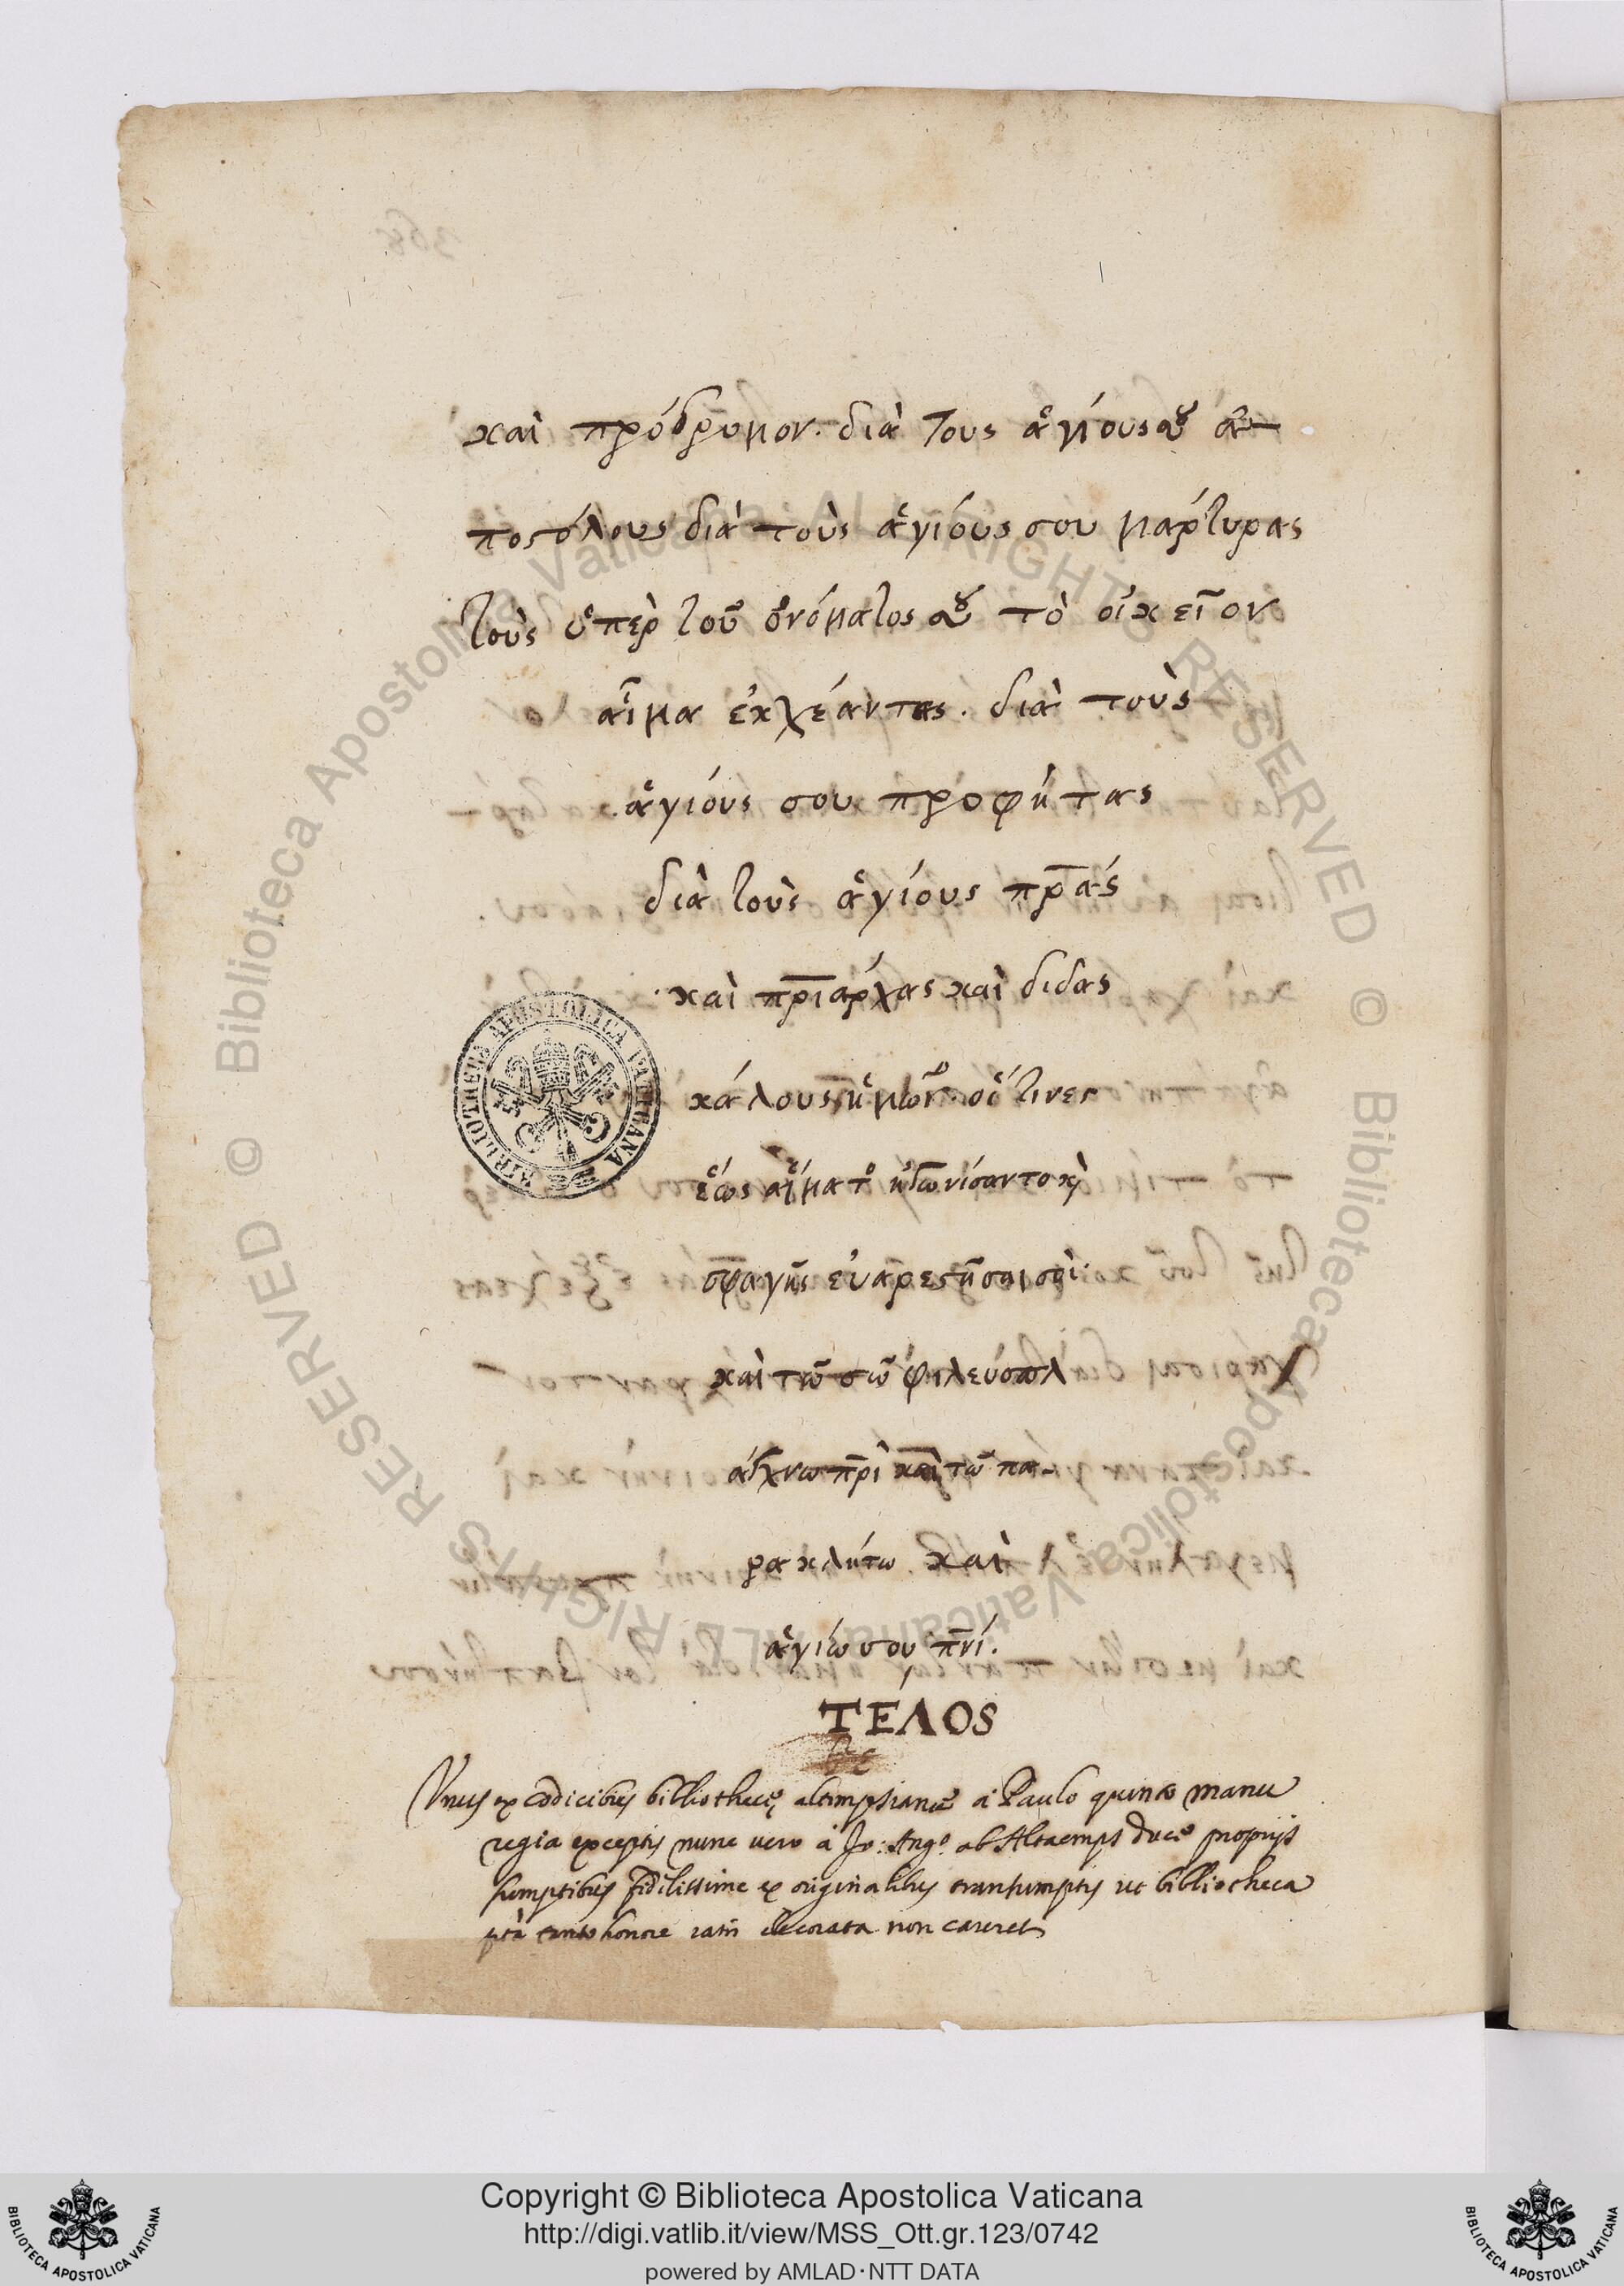 καὶ πρόδρομον. διὰ τους ἁγίους σου ἀ-
ποστόλους διὰ τοὺς ἁγιόυς σου μαρτυρας
τοὺς ὑπὲρ τοῦ ὀνόματος σου τὸ οἰκεῖον
αἷμα ἐκχέαντας. διὰ τοὺς
ἁγιόυς σου προφήτας
διὰ τοὺς ἁγίους πρ̅ας
καὶ πρ̅ιαρχας καὶ διδας
κάλους ἡμῶν οἵτινες
ἕως αἵματο
σφαγῆς εὐαρεστῆσαι σοὶ
καὶ τῶ σῶ
πρ̅ὶ καὶ τῶ πα-
ρακλήτω καὶ
ἁγίω σου πν̅ί.
ΤΕΛΟΣ
Vnus ex codicibus bibliothecę altempsianę a Paulo quinto manu
regia exceptis nunc vero à Jo: Angº. ab Altaemps Duce proprijs
sumptibus fidelissime ex originalibus transumptis ut bibliotheca
pta tanto honore iam decorata non careret
BIBLIOTHECA APOSTOLICA VATICANA
© Biblioteca Apostolica Vaticana ALL RIGHTS RESERVED © Biblioteca Apostolica Vaticana ALL RIGHTS RESERVED
Copyright © Biblioteca Apostolica Vaticana
http://digi.vatlib.it/view/MSS_Ott.gr.123/0742
powered by AMLAD·NTT DATA
BIBLIOTECA APOSTOLICA VATICANA
BIBLIOTECA APOSTOLICA VATICANA